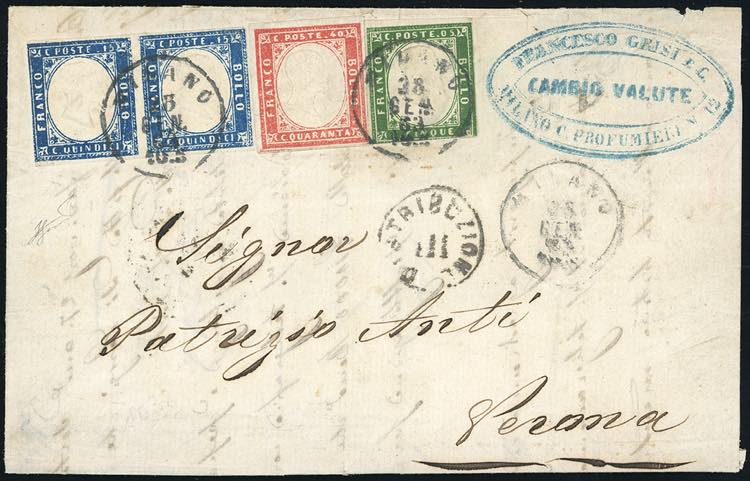 C. POSTE. 15
FRANCO
BOLLO
C. QUINDICI
C. POSTE. 15
FRANCO
BOLLO
C. QUINDICI
C. POSTE. 40
FRANCO
BOLLO
C. QUARANTA
C. POSTE. 05
FRANCO
BOLLO
QUE
MILANO
28
GEN
MILANO
28
GEN.
FRANCESCO GRISI & C.
CAMBIO VALUTE
MILANO C. PROFUMIERI N. 12
DISTRIBUZIONE
III
MILANO
28
GEN
Signor
Patrizio Anti
Verona